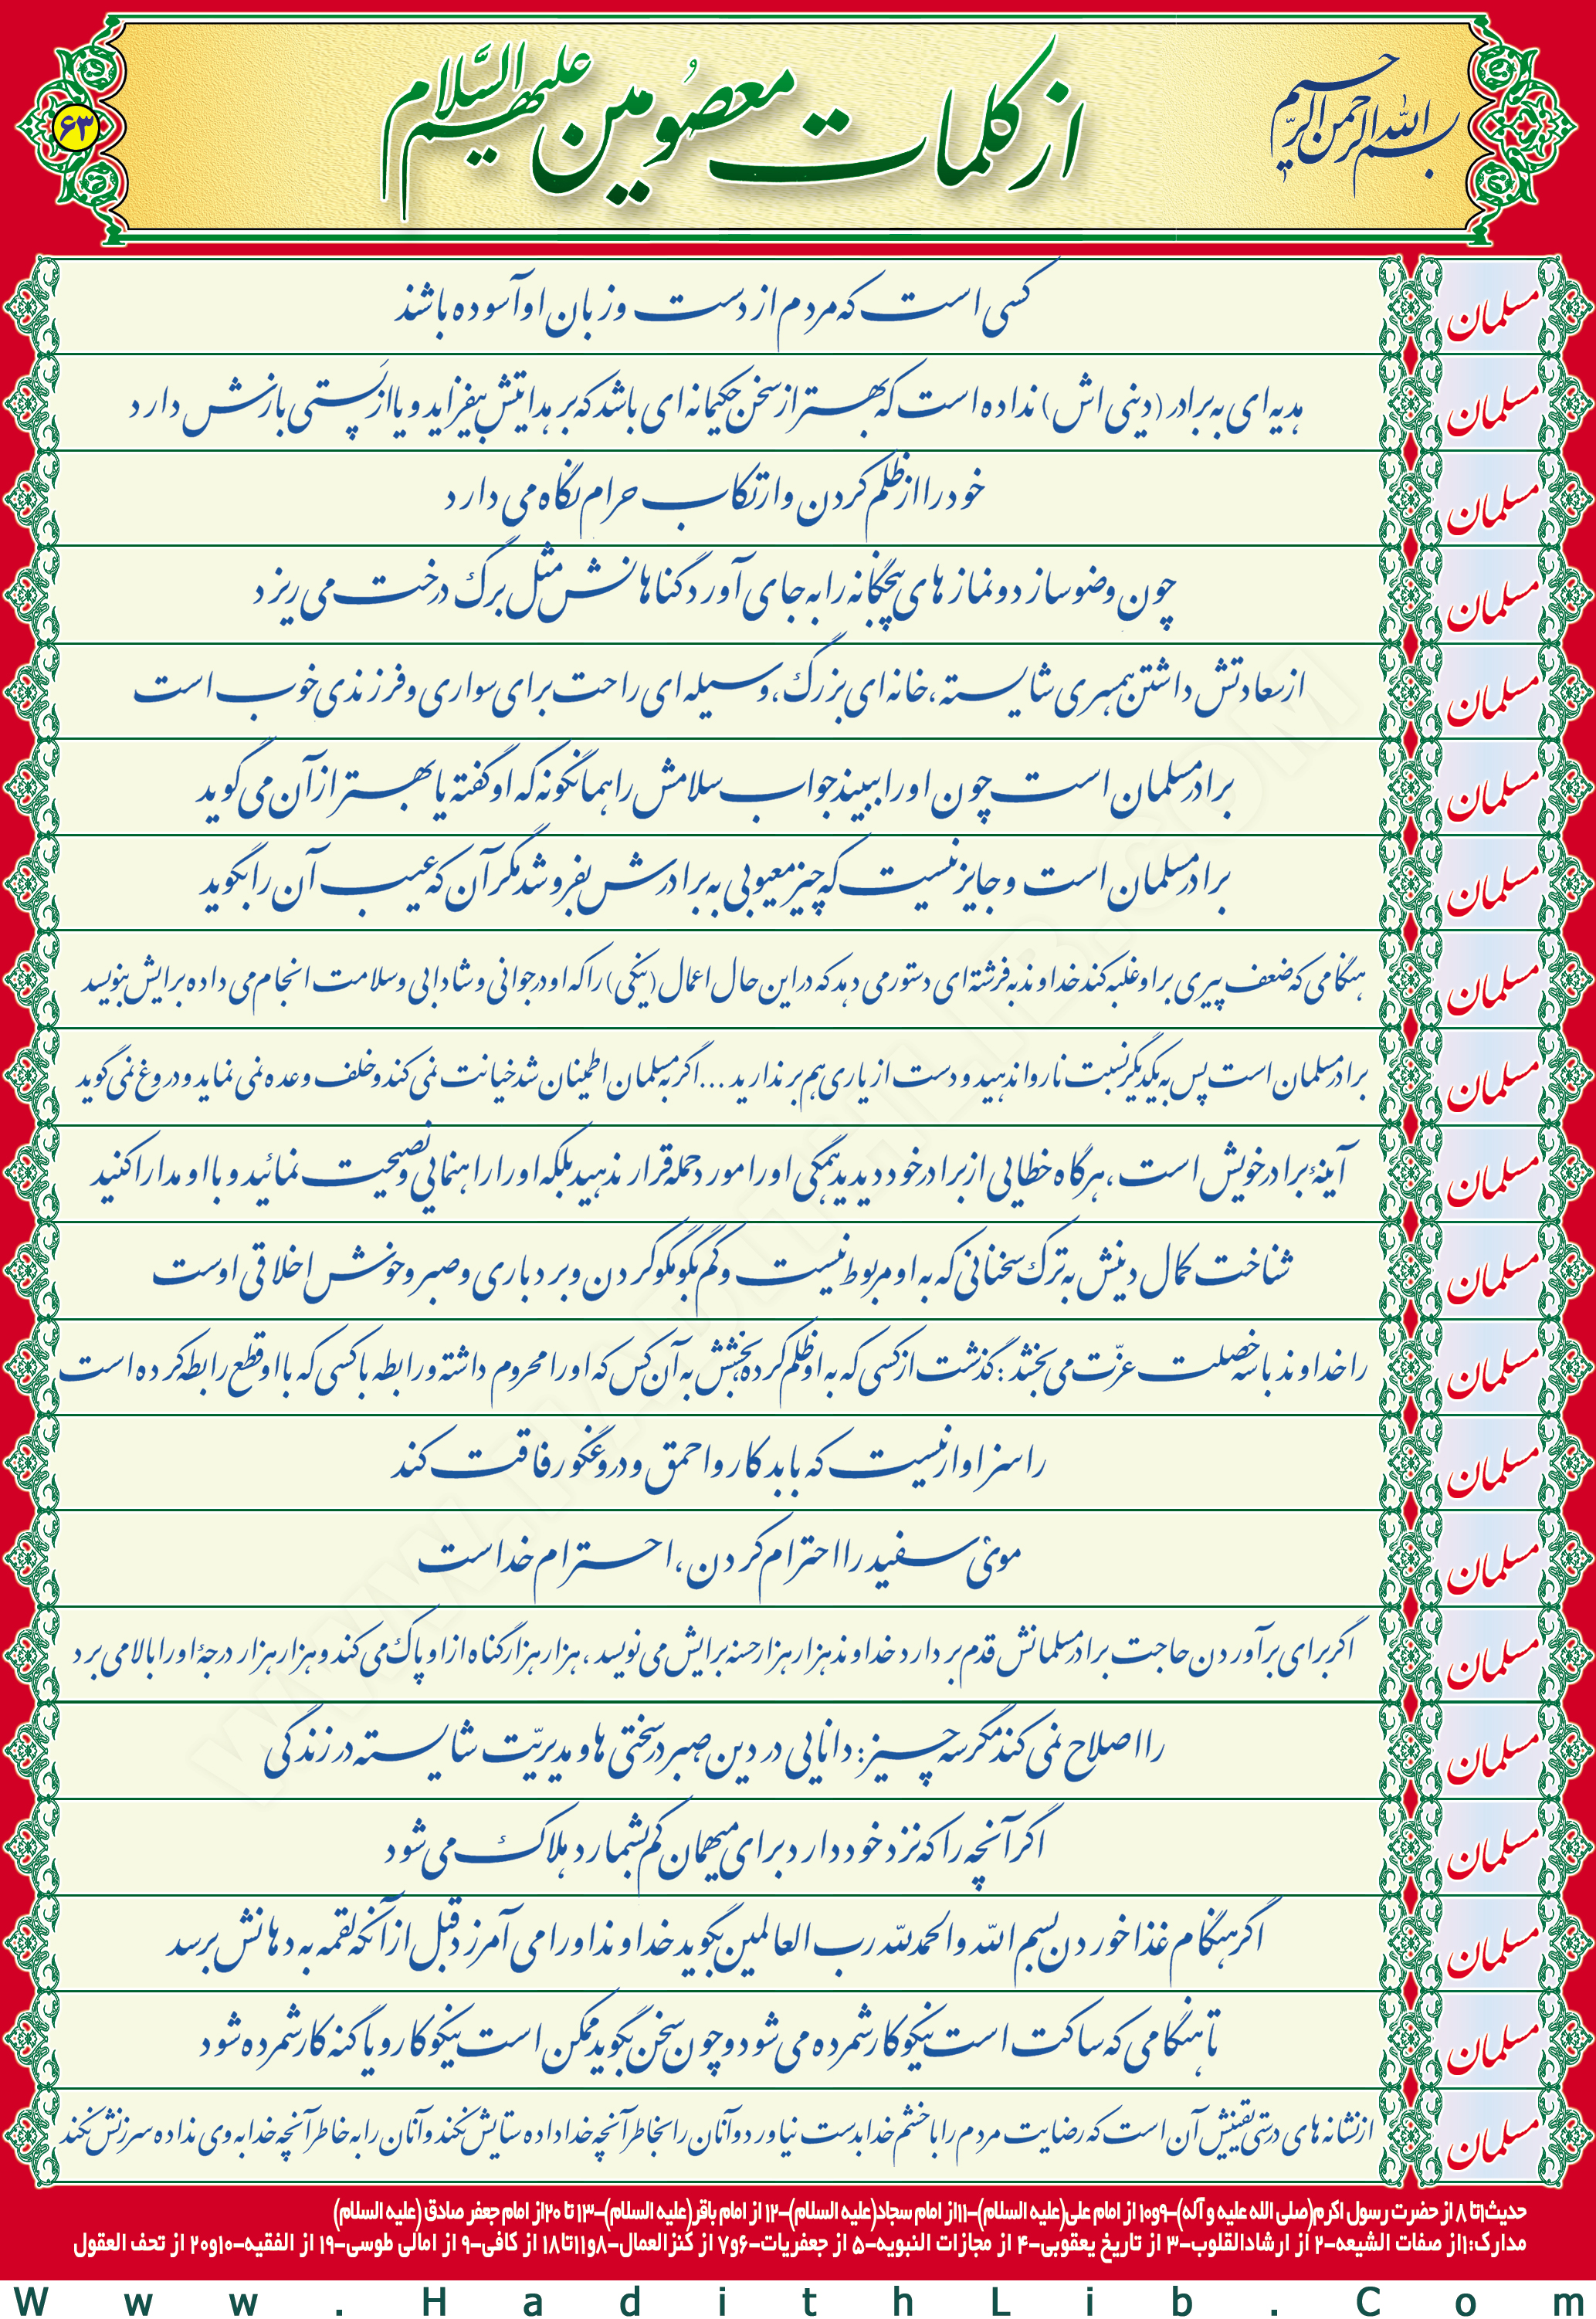 بسم الله الرحمن الرحیم
از کلمات معصومین علیهم السّلام
۶۳
مسلمان کسی است که مردم از دست و زبان او آسوده باشند
مسلمان هدیه ای به برادر (دینی اش) نداده است که بهتر از سخن حکیمانه ای باشد که بر هدایتش بیفزاید و یا از پَستی بازش دارد
مسلمان خود را از ظلم کردن و ارتکاب حرام نگاه می دارد
مسلمان چون وضو سازد و نمازهای پنجگانه را به جای آورد گناهانش مثل برگ درخت می ریزد
مسلمان از سعادتش داشتن همسری شایسته، خانه ای بزرگ، وسیله ای راحت برای سواری و فرزندی خوب است
مسلمان برادر مسلمان است چون او را ببیند جواب سلامش را همانگونه که او گفته یا بهتر از آن می گوید
مسلمان برادر مسلمان است و جایز نیست که چیز معیوبی به برادرش بفروشد مگر آن که عیب آن را بگوید
مسلمان هنگامی که ضعف پیری بر او غلبه کند خداوند به فرشته ای دستور می دهد که در این حال اعمال (نیکی) را که او در جوانی و شادابی و سلامت انجام می داده برایش بنویسد
مسلمان برادر مسلمان است پس به یکدیگر نسبت ناروا ندهید و دست از یاری هم برندارید ... اگر به مسلمان اطمینان شد خیانت نمی کند و خلف وعده نمی نماید و دروغ نمی گوید
مسلمان آینهٔ برادر خویش است، هرگاه خطایی از برادر خود دیدید همگی او را مورد حمله قرار ندهید بلکه او را راهنمایی و نصیحت نمائید و با او مدارا کنید
مسلمان شناخت کمال دینش به ترک سخنانی که به او مربوط نیست و کم بگو مگو کردن و بردباری و صبر و خوش اخلاقی اوست
مسلمان را خداوند با سه خصلت عزّت می بخشد: گذشت از کسی که به او ظلم کرده بخشش به آن کس که او را محروم داشته و رابطه با کسی که با او قطع رابطه کرده است
مسلمان را سزاوار نیست که با بدکار و احمق و دروغگو رفاقت کند
مسلمان موی سفید را احترام کردن، احترام خداست
مسلمان اگر برای برآوردن حاجت برادر مسلمانش قدم بردارد خداوند هزار هزار حسنه برایش می نویسد، هزار هزار گناه از او پاک می کند و هزار هزار درجهٔ او را بالا می برد
مسلمان را اصلاح نمی کند مگر سه چیز: دانایی در دین، صبر در سختی ها و مدیریّت شایسته در زندگی
مسلمان اگر آنچه را که نزد خود دارد برای میهمان کم بشمارد هلاک می شود
مسلمان اگر هنگام غذا خوردن بسم الله و الحمدلله رب العالمین بگوید خداوند او را می آمرزد قبل از آنکه لقمه به دهانش برسد
مسلمان تا هنگامی که ساکت است نیکوکار شمرده می شود و چون سخن بگوید ممکن است نیکوکار و یا گنه کار شمرده شود
مسلمان از نشانه های درستی یقینش آن است که رضایت مردم را با خشم خدا بدست نیاورد و آنان را بخاطر آنچه خدا داده ستایش نکند و آنان را به خاطر آنچه خدا به وی نداده سرزنش نکند
حدیث۱تا ۸ از حضرت رسول اکرم(صلی الله علیه و آله)–۹و۱۰ از امام علی(علیه السلام)–۱۱از امام سجاد(علیه السلام)–۱۲ از امام باقر(علیه السلام)–۱۳ تا ۲۰از امام جعفر صادق (علیه السلام)
مدارک:۱از صفات الشیعه–۲ از ارشادالقلوب–۳ از تاریخ یعقوبی–۴ از مجازات النبویه–۵ از جعفریات–۶و۷ از کنزالعمال–۸و۱۱تا۱۸ از کافی–۹ از امالی طوسی–۱۹ از الفقیه–۱۰و۲۰ از تحف العقول
Www.HadithLib.Com